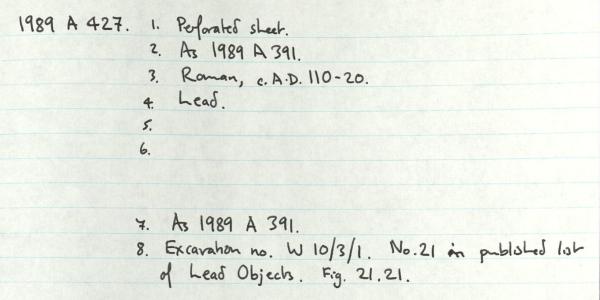 1989 A 427. 1. Perforated sheet.
2. As 1989 A 391.
3. Roman, c. A.D. 110-20.
4. Lead.
5.
6.
7. As 1989 A 391.
8. Excavation no. W 10/3/1. No. 21 in published list
of Lead Objects. Fig. 21.21.